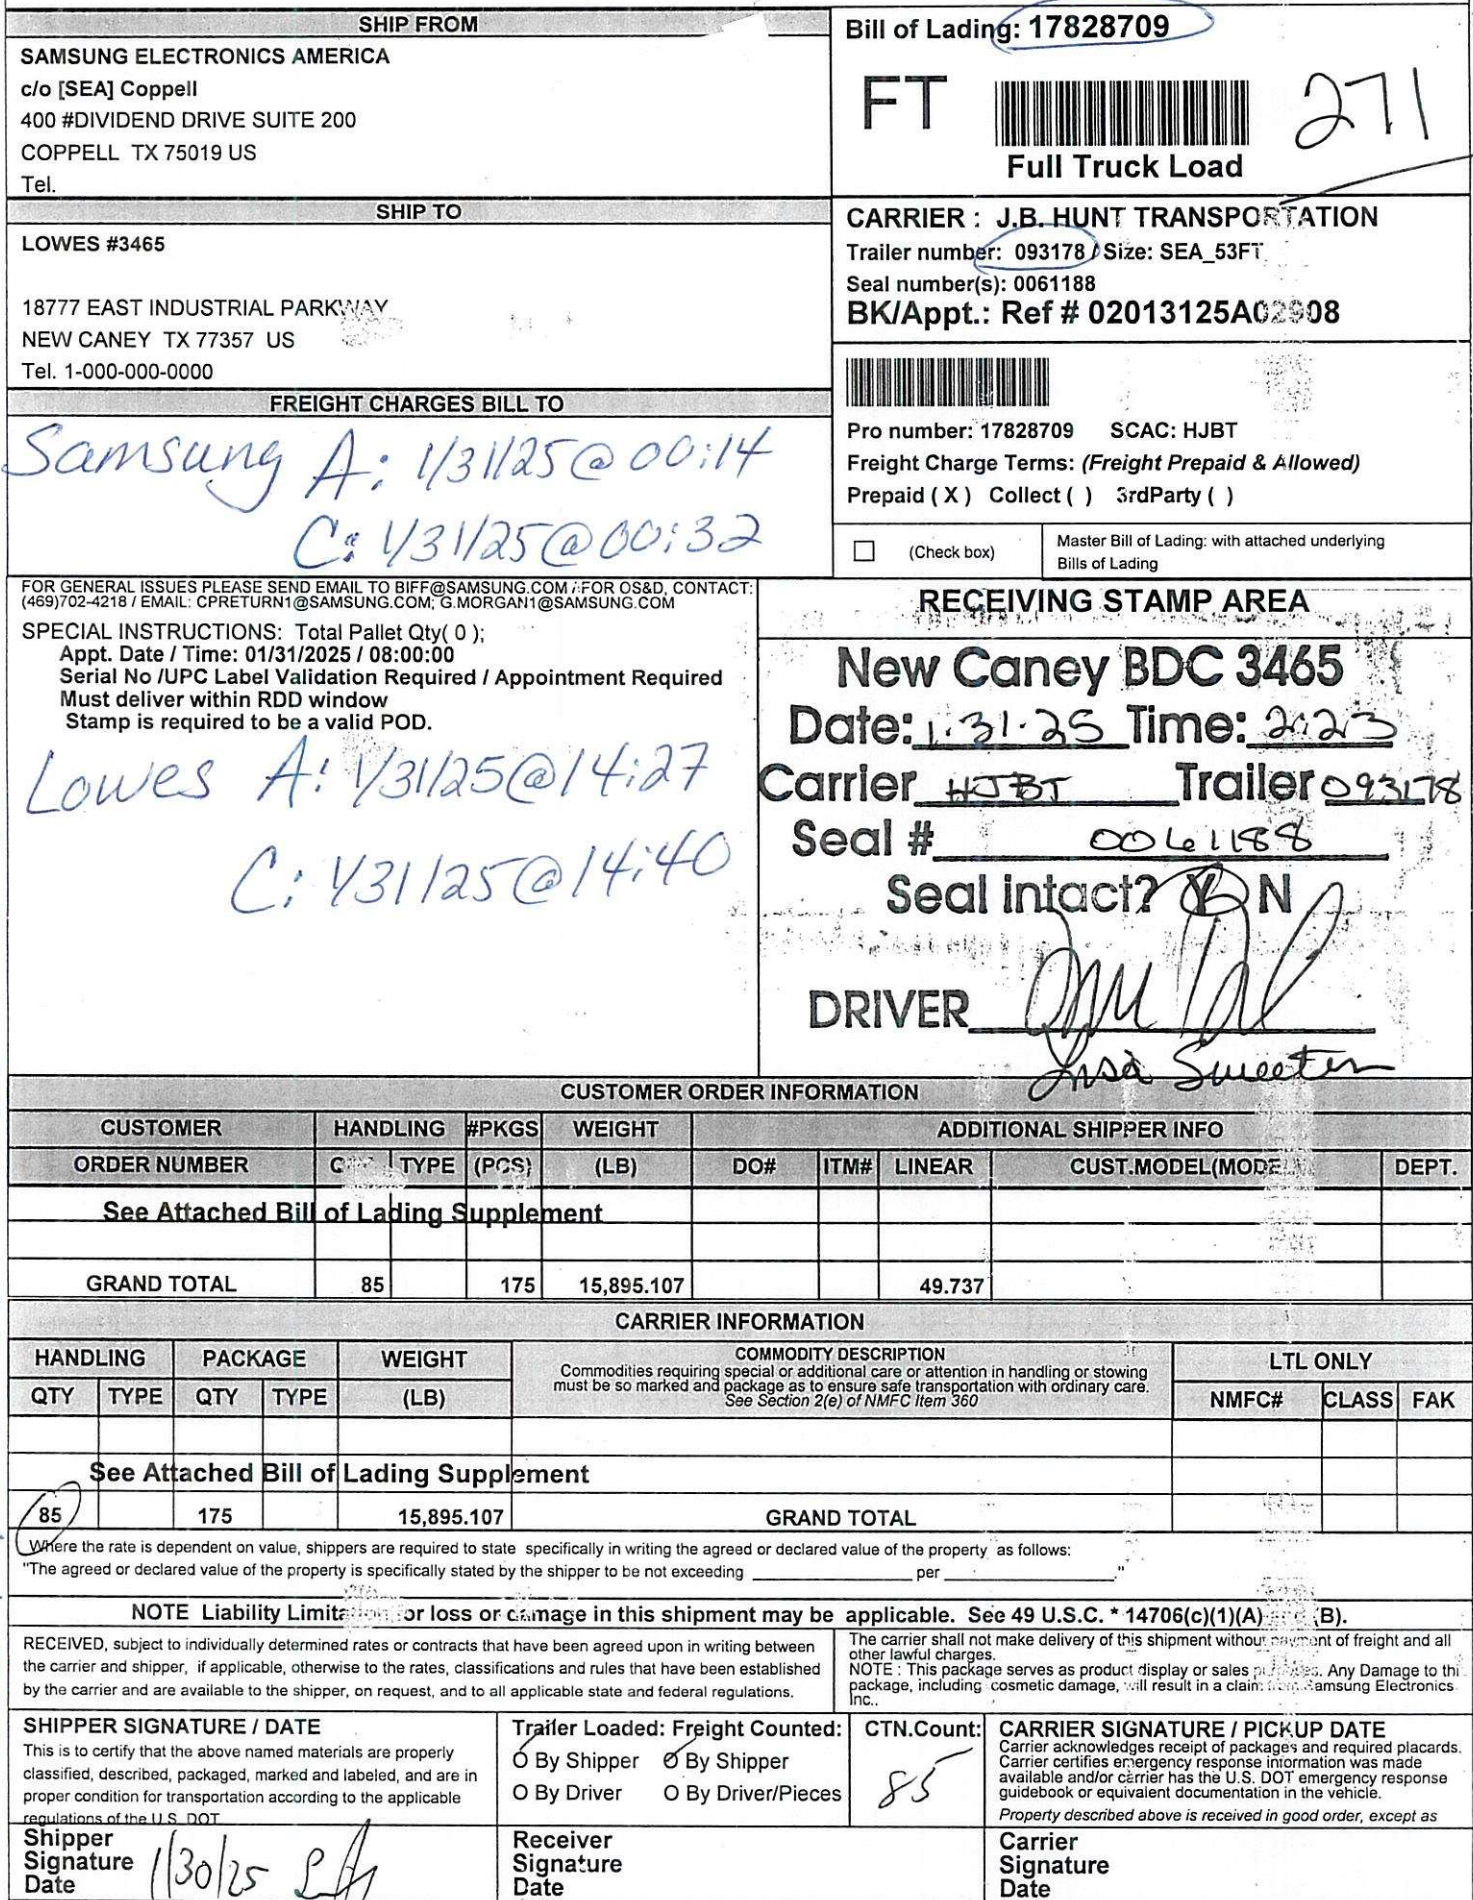 SHIP FROM
SAMSUNG ELECTRONICS AMERICA
c/o [SEA] Coppell
400 #DIVIDEND DRIVE SUITE 200
COPPELL TX 75019 US
Tel.
Bill of Lading: 17828709
FT
271
Full Truck Load
SHIP TO
LOWES #3465
18777 EAST INDUSTRIAL PARKWAY
NEW CANEY TX 77357 US
Tel. 1-000-000-0000
CARRIER : J.B. HUNT TRANSPORTATION
Trailer number: 093178 / Size: SEA_53FT
Seal number(s): 0061188
BK/Appt.: Ref # 02013125A02908
FREIGHT CHARGES BILL TO
Samsung A: 1/31/25@00:14
C: 1/31/25@00:32
Pro number: 17828709 SCAC: HJBT
Freight Charge Terms: (Freight Prepaid & Allowed)
Prepaid ( X ) Collect ( ) 3rdParty ( )
(Check box)
Master Bill of Lading: with attached underlying
Bills of Lading
FOR GENERAL ISSUES PLEASE SEND EMAIL TO BIFF@SAMSUNG.COM / FOR OS&D, CONTACT:
(469)702-4218 / EMAIL: CPRETURN1@SAMSUNG.COM; G.MORGAN1@SAMSUNG.COM
SPECIAL INSTRUCTIONS: Total Pallet Qty( 0 );
Appt. Date / Time: 01/31/2025 / 08:00:00
Serial No /UPC Label Validation Required / Appointment Required
Must deliver within RDD window
Stamp is required to be a valid POD.
Lowes A: 1/31/25@14:27
C: 1/31/25@14:40
RECEIVING STAMP AREA
New Caney BDC 3465
Date: 1.31.25 Time: 2:23
Carrier HJBT Trailer 093178
Seal # 0061188
Seal intact? Y N
DRIVER
Lisa Sweeten
CUSTOMER ORDER INFORMATION
CUSTOMER HANDLING #PKGS WEIGHT ADDITIONAL SHIPPER INFO
ORDER NUMBER TYPE (PCS) (LB) DO# ITM# LINEAR CUST.MODEL(MODEL) DEPT.
See Attached Bill of Lading Supplement
GRAND TOTAL 85 175 15,895.107 49.737
CARRIER INFORMATION
HANDLING PACKAGE WEIGHT COMMODITY DESCRIPTION LTL ONLY
Commodities requiring special or additional care or attention in handling or stowing
must be so marked and package as to ensure safe transportation with ordinary care.
See Section 2(e) of NMFC Item 360
QTY TYPE QTY TYPE (LB) NMFC# CLASS FAK
See Attached Bill of Lading Supplement
85 175 15,895.107 GRAND TOTAL
Where the rate is dependent on value, shippers are required to state specifically in writing the agreed or declared value of the property as follows:
"The agreed or declared value of the property is specifically stated by the shipper to be not exceeding ____________ per ____________."
NOTE Liability Limitation for loss or damage in this shipment may be applicable. See 49 U.S.C. * 14706(c)(1)(A) and (B).
RECEIVED, subject to individually determined rates or contracts that have been agreed upon in writing between
the carrier and shipper, if applicable, otherwise to the rates, classifications and rules that have been established
by the carrier and are available to the shipper, on request, and to all applicable state and federal regulations.
The carrier shall not make delivery of this shipment without payment of freight and all
other lawful charges.
NOTE : This package serves as product display or sales purposes. Any Damage to thi
package, including cosmetic damage, will result in a claim from Samsung Electronics
Inc..
SHIPPER SIGNATURE / DATE
This is to certify that the above named materials are properly
classified, described, packaged, marked and labeled, and are in
proper condition for transportation according to the applicable
regulations of the U.S. DOT
Trailer Loaded: Freight Counted:
O By Shipper O By Shipper
O By Driver O By Driver/Pieces
CTN.Count:
85
CARRIER SIGNATURE / PICKUP DATE
Carrier acknowledges receipt of packages and required placards.
Carrier certifies emergency response information was made
available and/or carrier has the U.S. DOT emergency response
guidebook or equivalent documentation in the vehicle.
Property described above is received in good order, except as
Shipper
Signature
Date 1/30/25
Receiver
Signature
Date
Carrier
Signature
Date